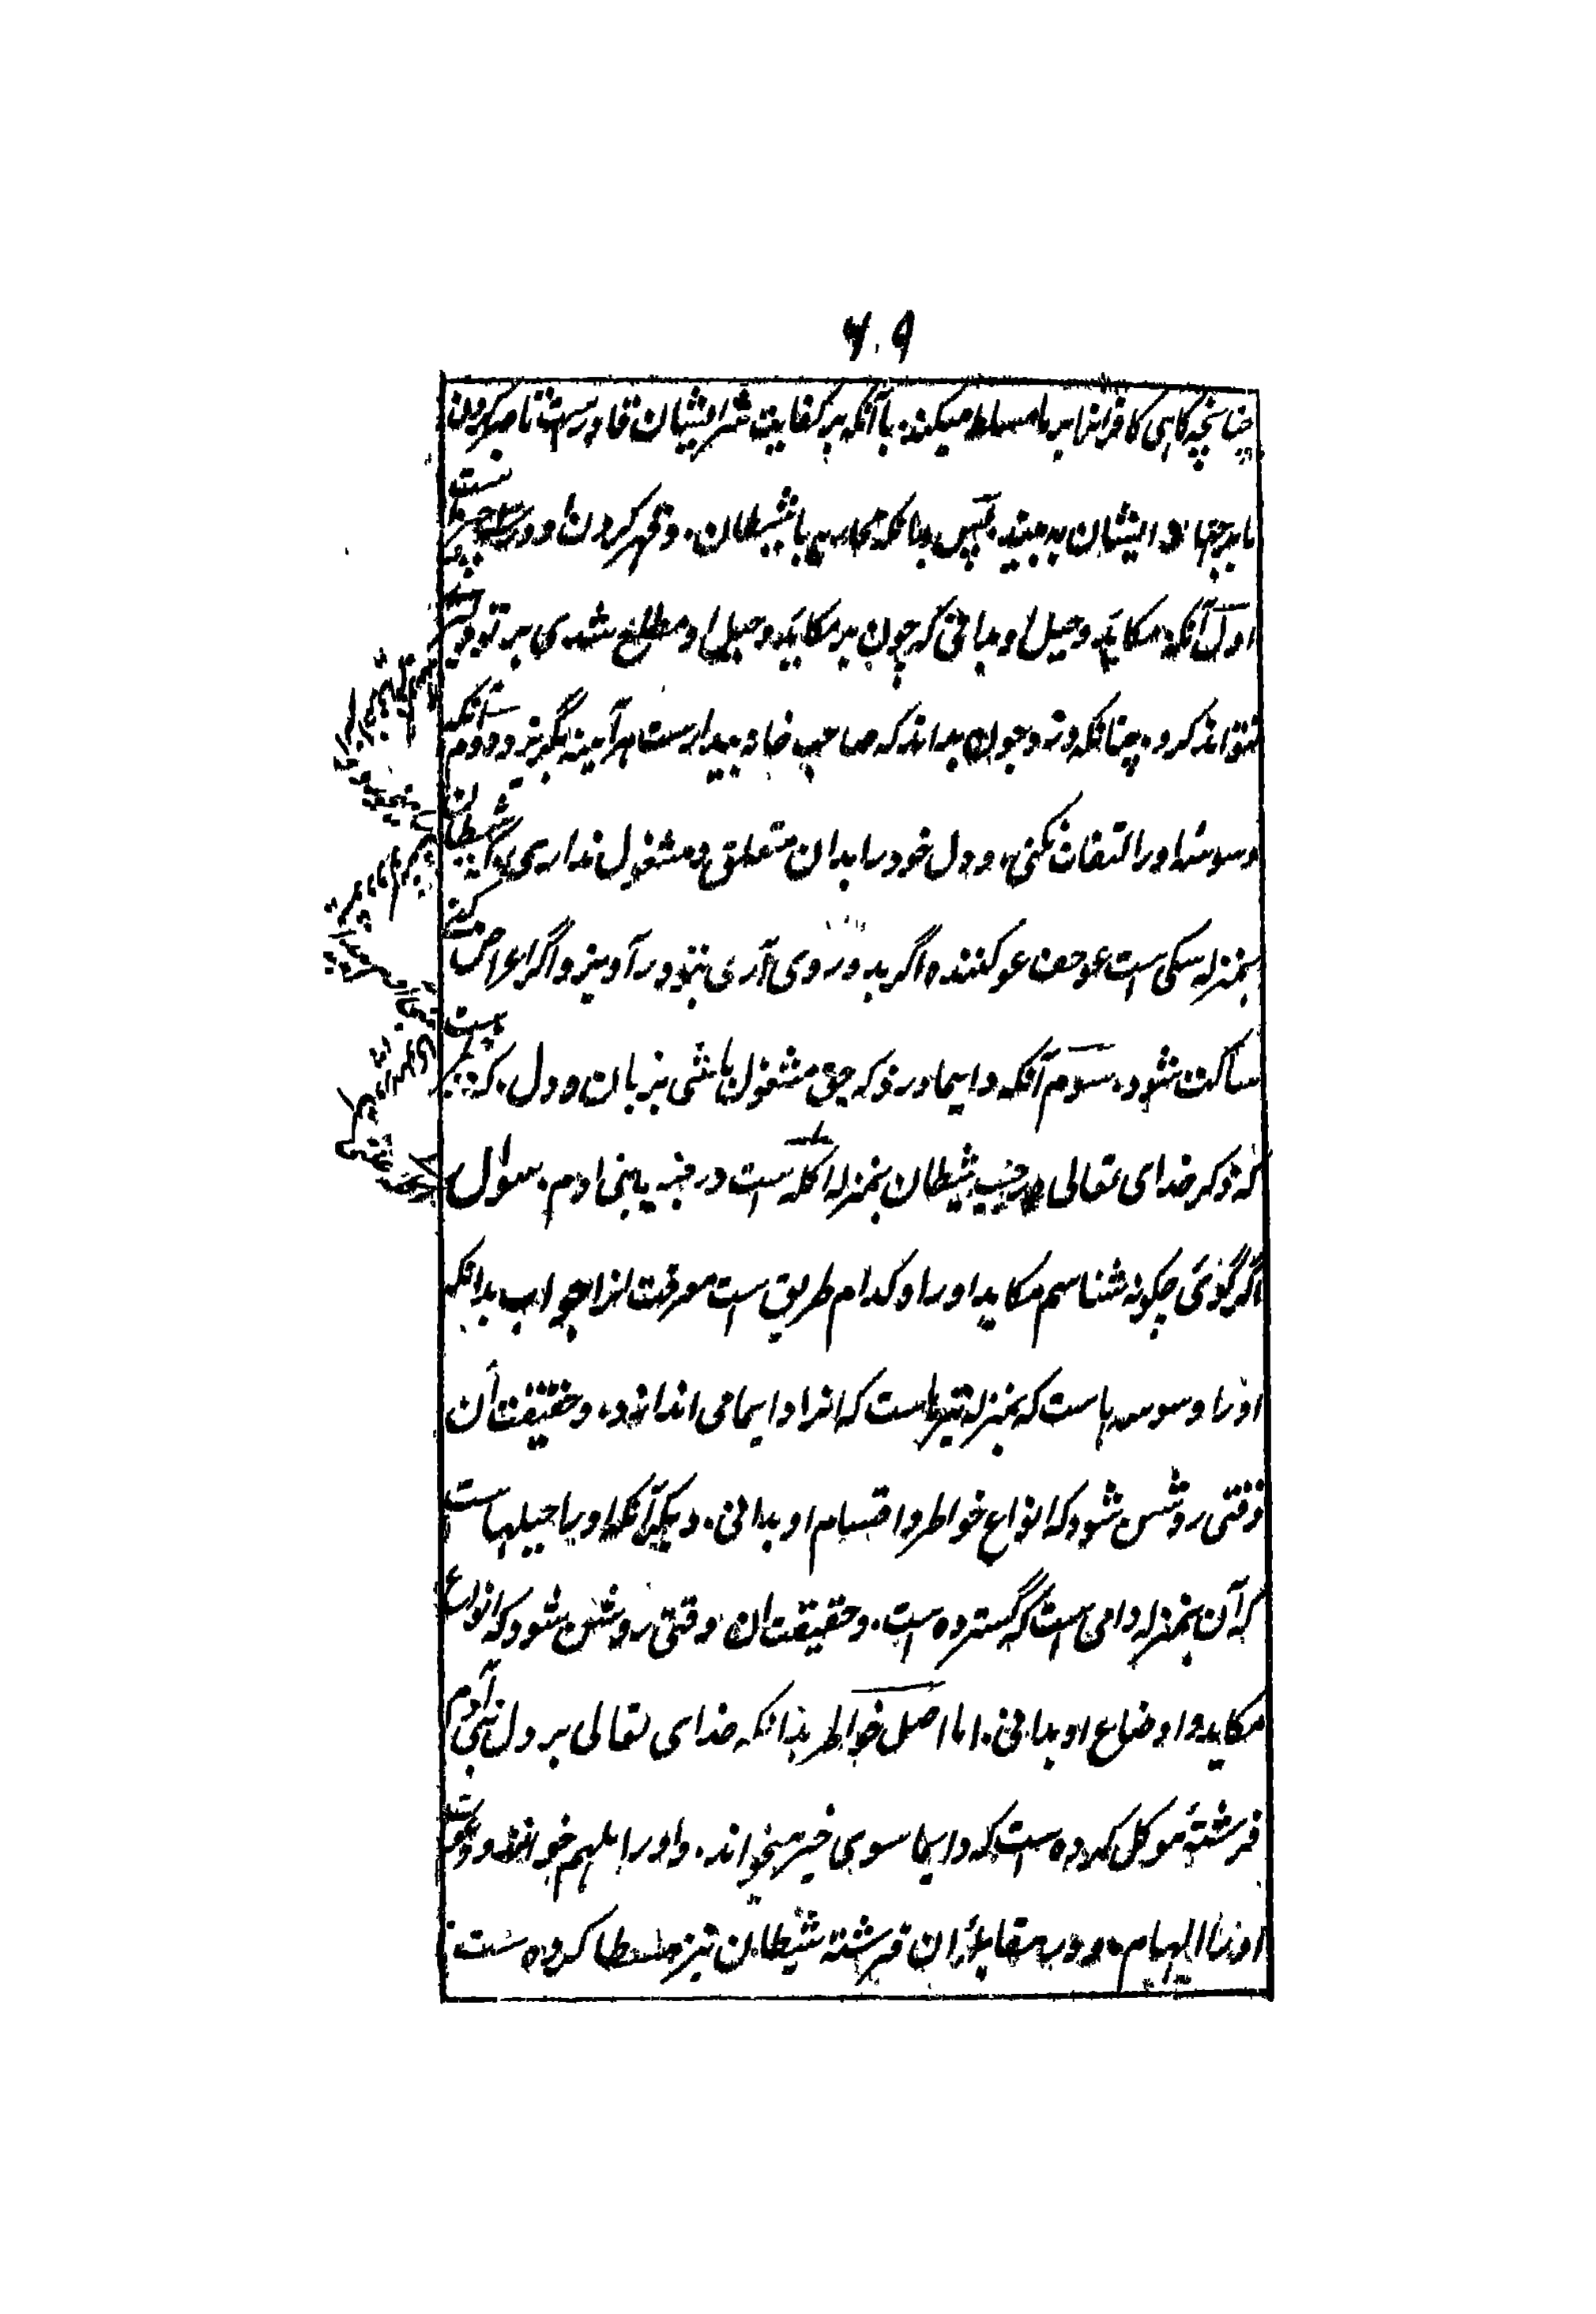 ۶۰۹
چنانچه گاهی کافرانرا بر ما مسلط میکند. با آنکه بر کفایت شر ایشان قادر ست تا صبر کردن
ما بر جهاد ایشان به بیند. پس بدانکه محاربه با شیطان. و قهر کردن او در سه چیز ست
اول آنکه مکاید و حیل او بدانی که چون بر مکاید و حیل او مطلع شدی بر تو
نتواند کرد. چنانکه دزد چون بداند که صاحب خانه بیدارست هرآینه بگریزد دوم آنکه
وسوسۀ او را التفات نکنی، و دل خود را بدان متعلق و مشغول نداری شیطان
بمنزله سگی است عوعو کننده اگر بدو روی آری بتو در آویزد و اگر اعراض کنی
ساکت شود. سوم آنکه دایما در ذکر حق مشغول باشی بزبان و دل. که
که ذکر خدای تعالی در جنب شیطان بمنزله اکله است در جنب بنی ادم. سوال
اگر گوئی چگونه شناسم مکاید او را و کدام طریق است معرفت انرا جواب بدانکه
او را وسوسه هاست که بمنزله تیرهاست که انرا دایما می اندازد. و حقیقت آن
وقتی روشن شود که انواع خواطر و اقسام او بدانی. دیگر آنکه او را حیلهاست
که آن بمنزله دامی است که گسترده است. و حقیقت ان وقتی روشن شود که انواع
مکاید و اوضاع او بدانی. اما اصل خواطر بدانکه خدای تعالی بر دل بنی آدم
فرشتۀ موکل کرده است که دایما سوی خیر میخواند. و او را ملهم خوانند و دعوت
او را الهام. و در مقابلۀ ان فرشته شیطان نیز مسلط کرده ست